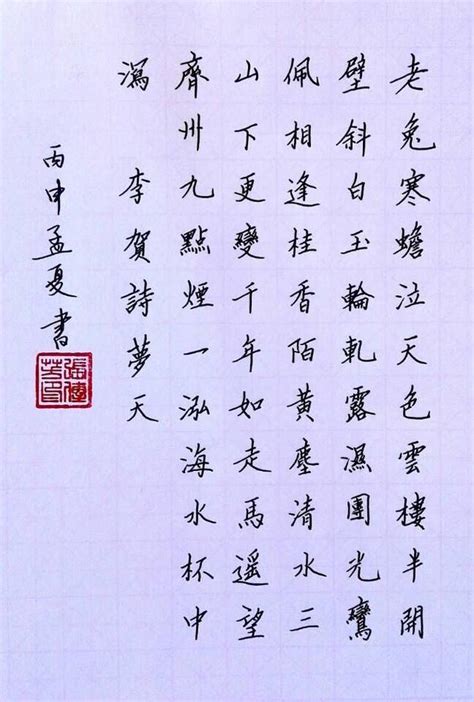 老兔寒蟾泣天色雲樓半開
壁斜白玉輪軋露濕團光鸞
佩相逢桂香陌黃塵清水三
山下更變千年如走馬遙望
齊州九點煙一泓海水杯中
瀉 李賀詩夢天
丙申孟夏書